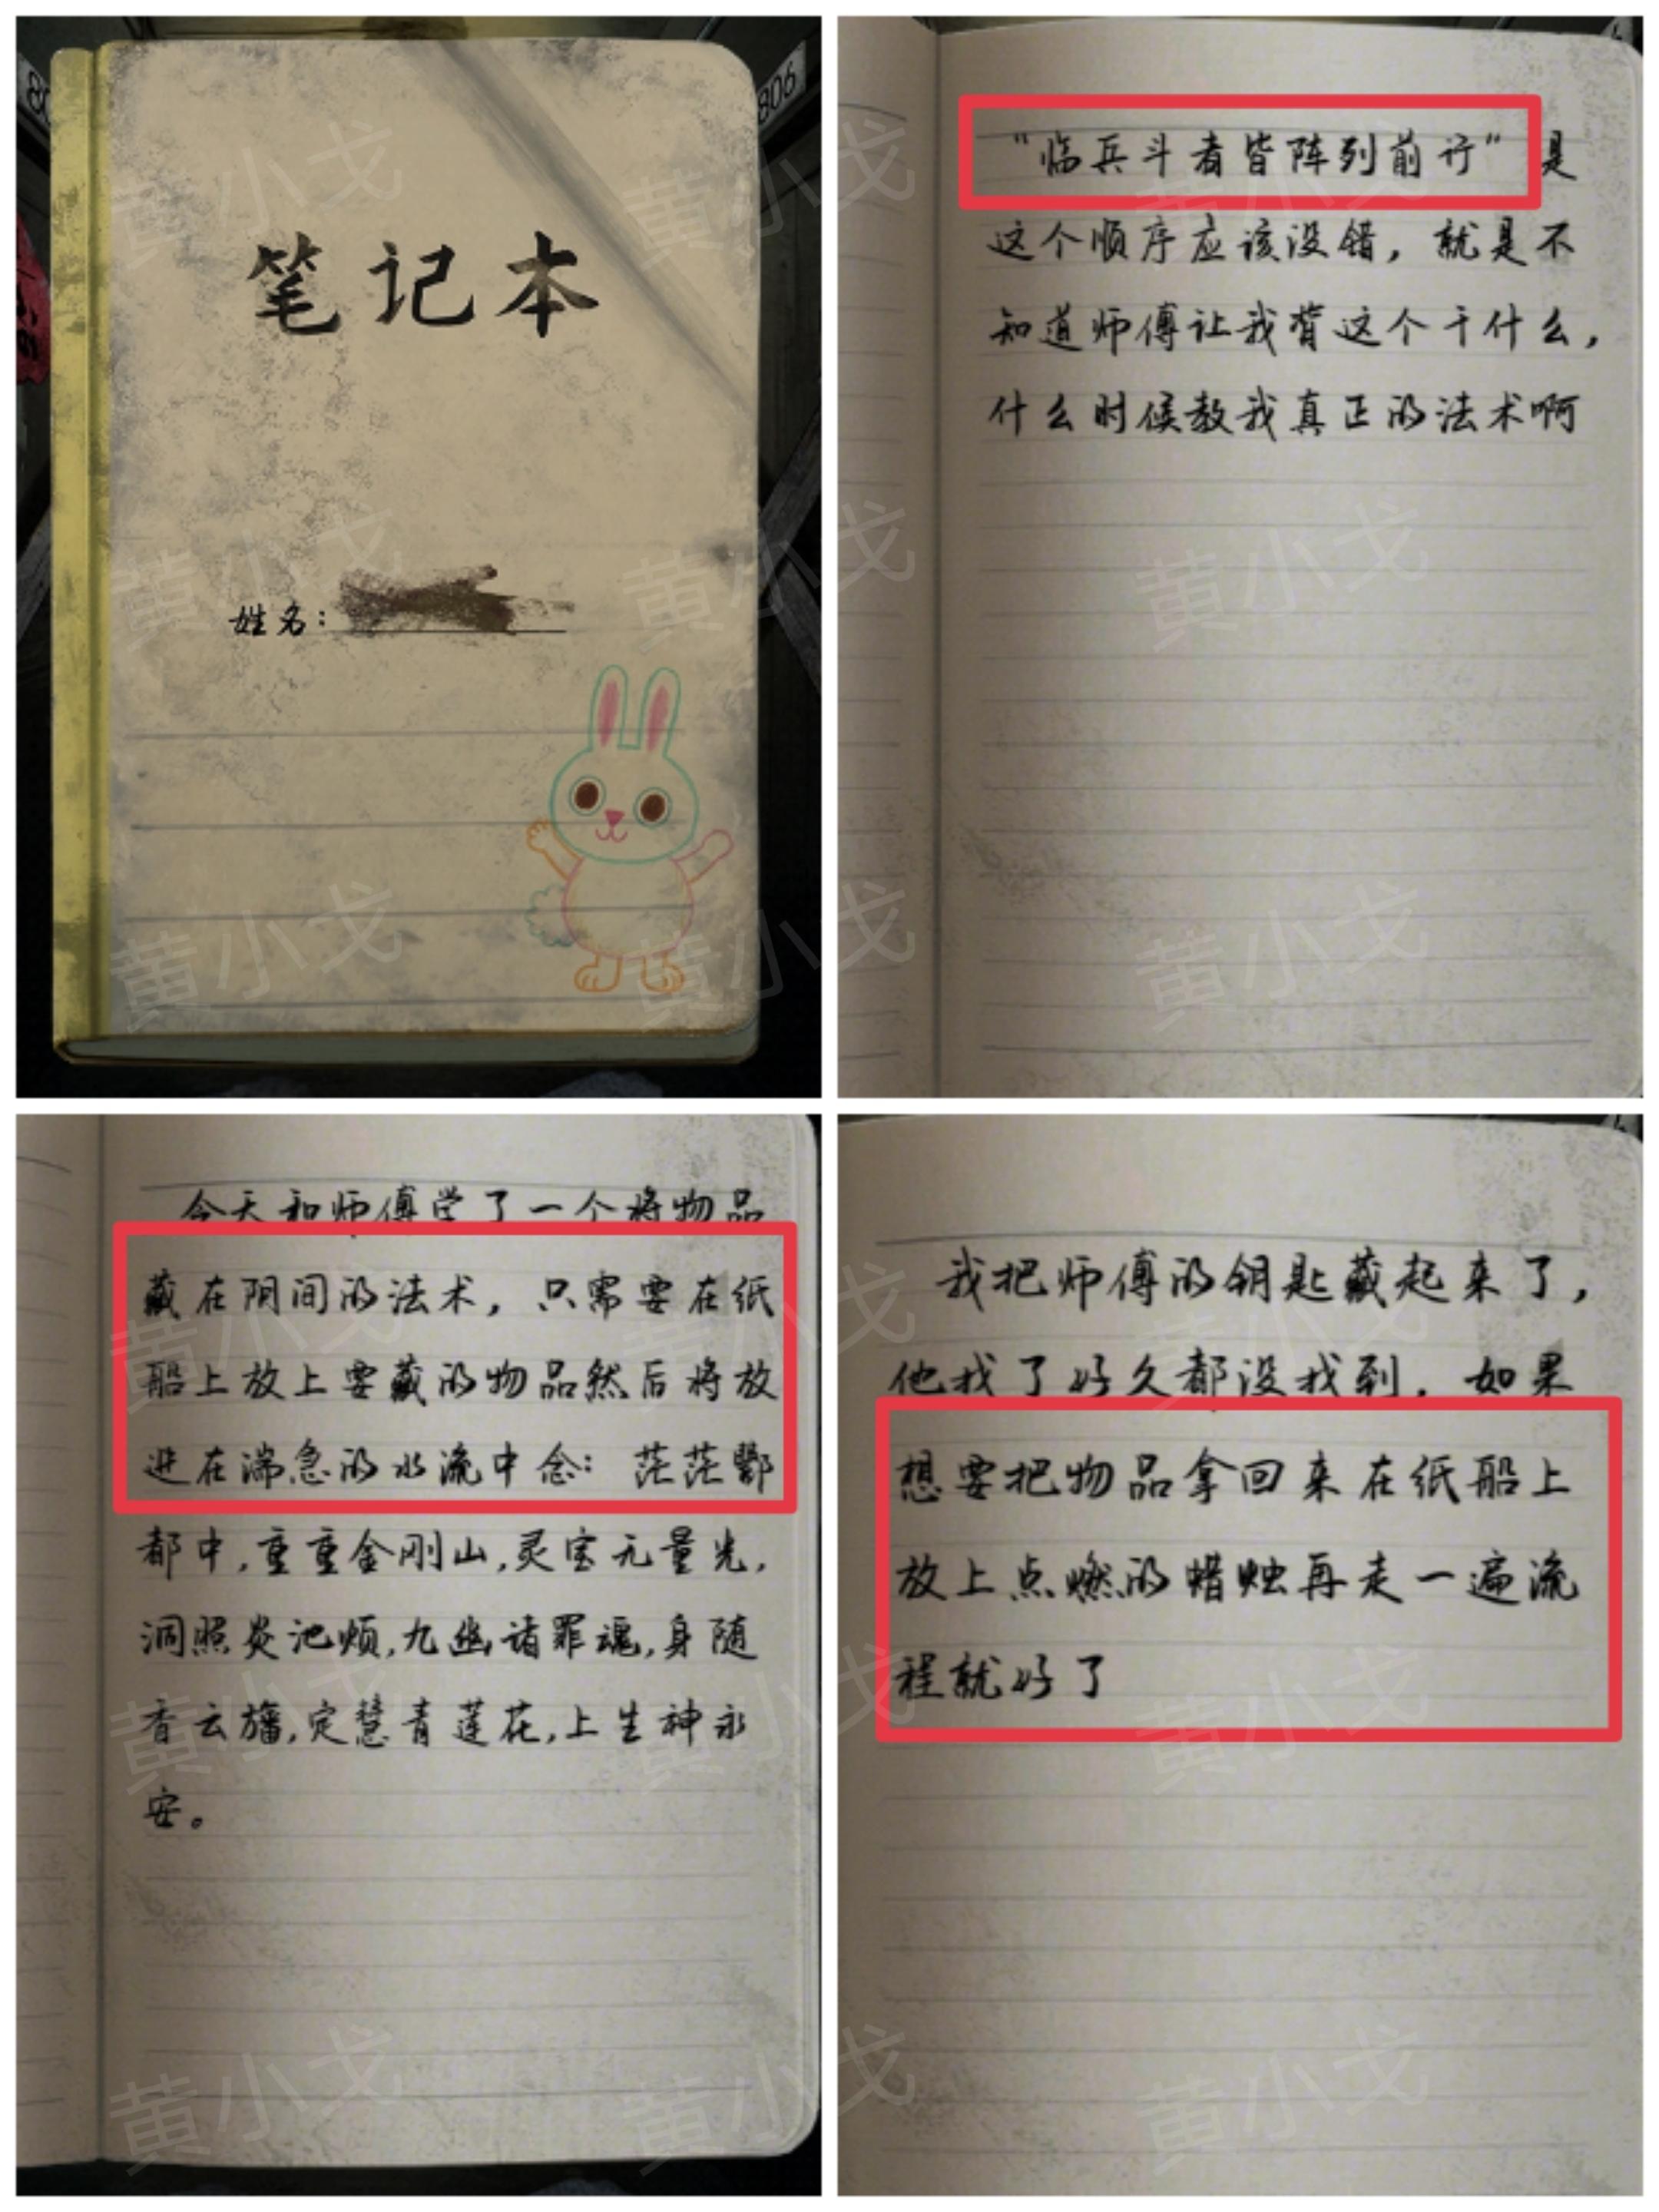 80
806
笔记本
姓名:
"临兵斗者皆阵列前行"是
这个顺序应该没错,就是不
知道师傅让我背这个干什么,
什么时候教我真正的法术啊
今天和师傅学了一个将物品
藏在阴间的法术,只需要在纸
船上放上要藏的物品然后将放
进在湍急的水流中念:茫茫酆
都中,重重金刚山,灵宝无量光,
洞照炎池烦,九幽诸罪魂,身随
香云旛,定慧青莲花,上生神永
安。
我把师傅的钥匙藏起来了,
他找了好久都没找到.如果
想要把物品拿回来在纸船上
放上点燃的蜡烛再走一遍流
程就好了
黄小戈